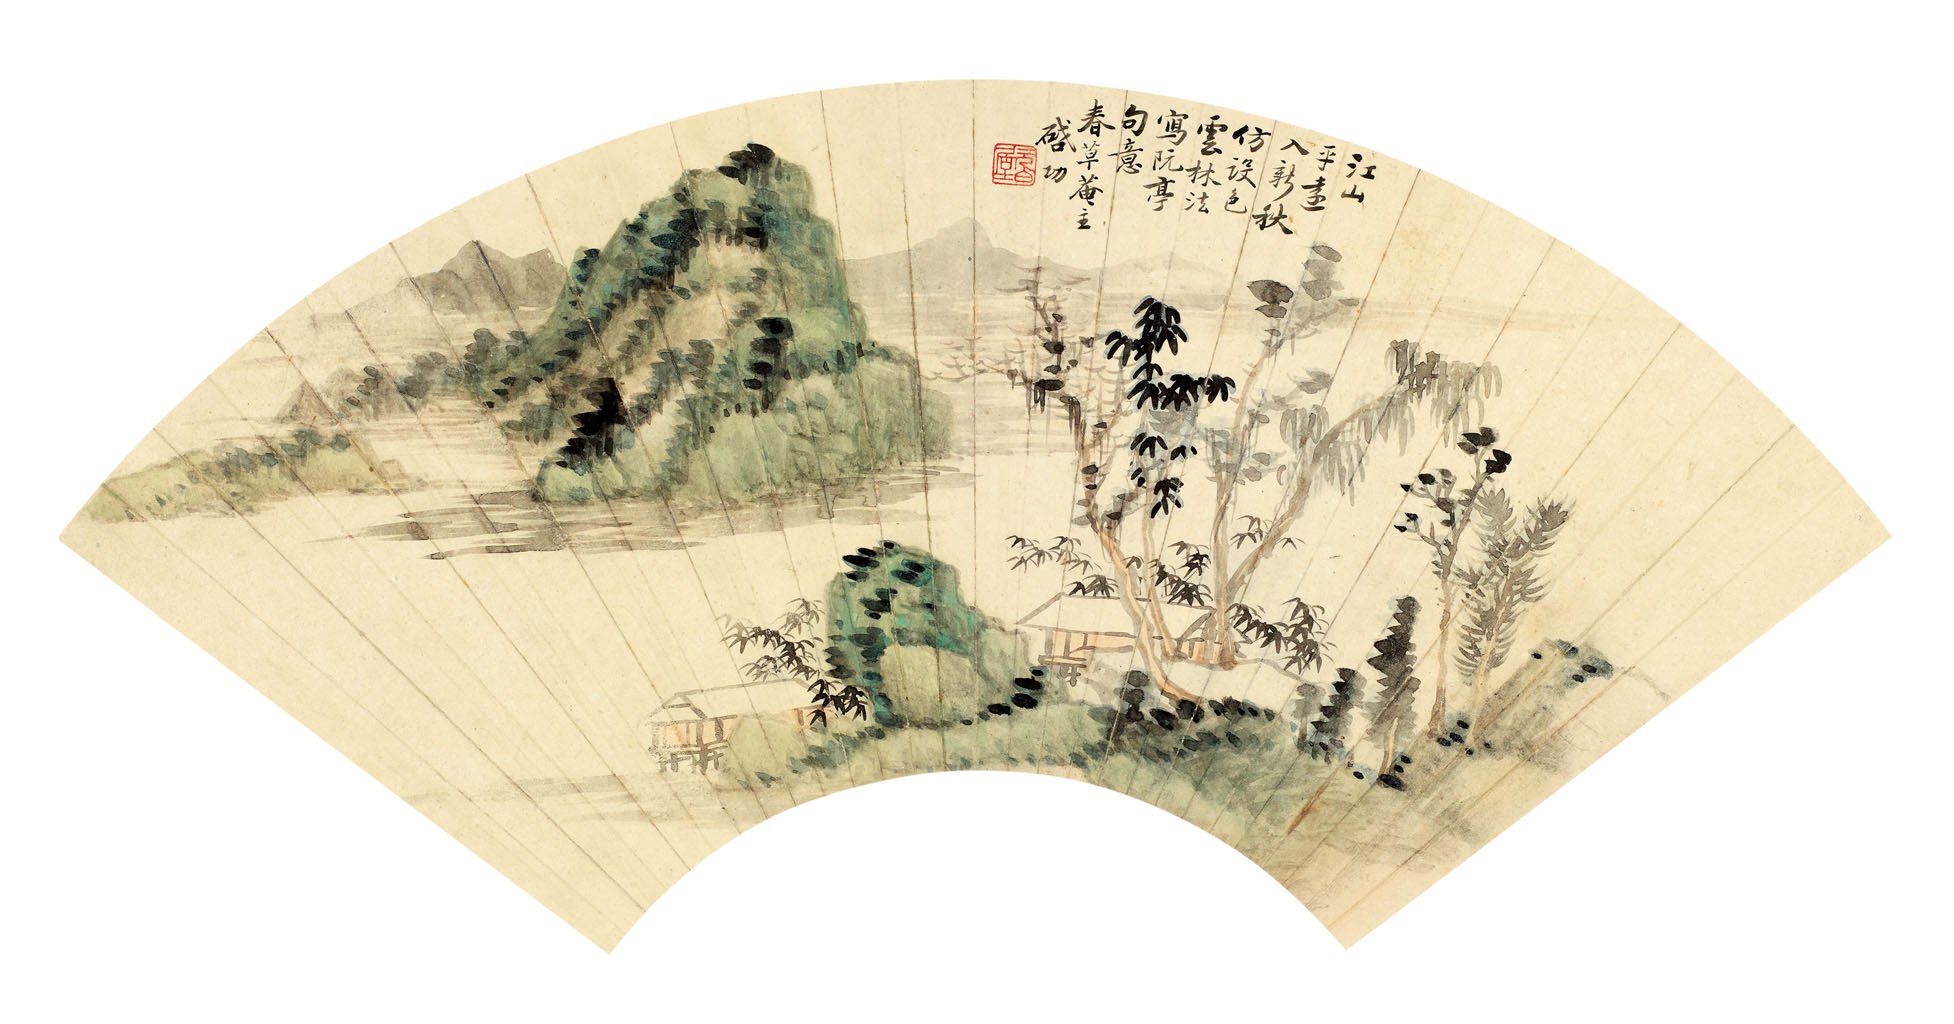 江山
平遠
入新秋
仿設色
雲林法
寫阮亭
句意
春草菴主
啓功
元白
居士